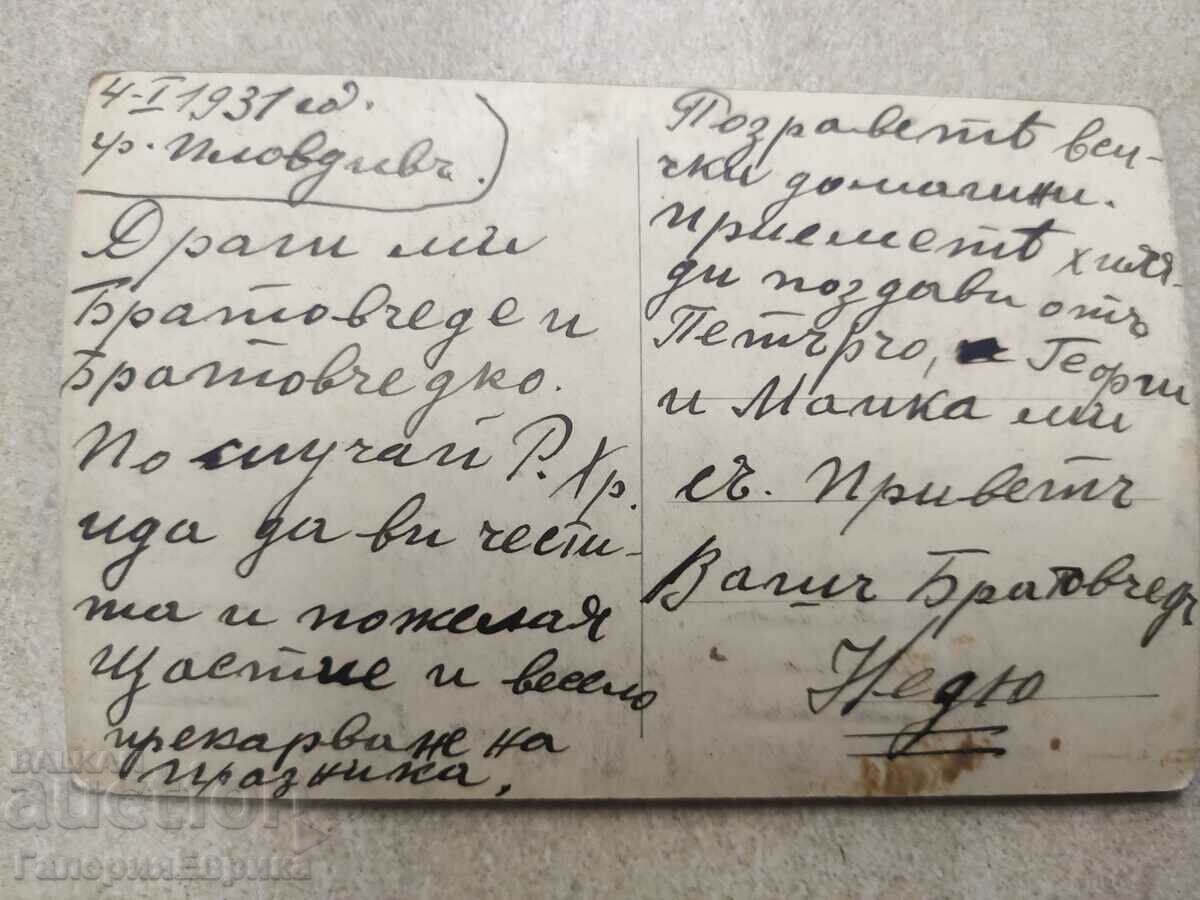 4-I 1931 год.
гр. Пловдивъ.
Драги ми
Братовчеде и
Братовчедко.
По случай Р. Хр.
ида да ви чести-
та и пожелая
Щастие и весело
прекарване на
празника.
Позраветѣ вси-
чки домашни.
Приеметѣ хиля-
ди поздави отъ
Петърчо, Георги
и Маика ми
съ. Приветъ
Вашъ Братовчедъ
Недю
BALKAN
auction
ГалерияЕврика